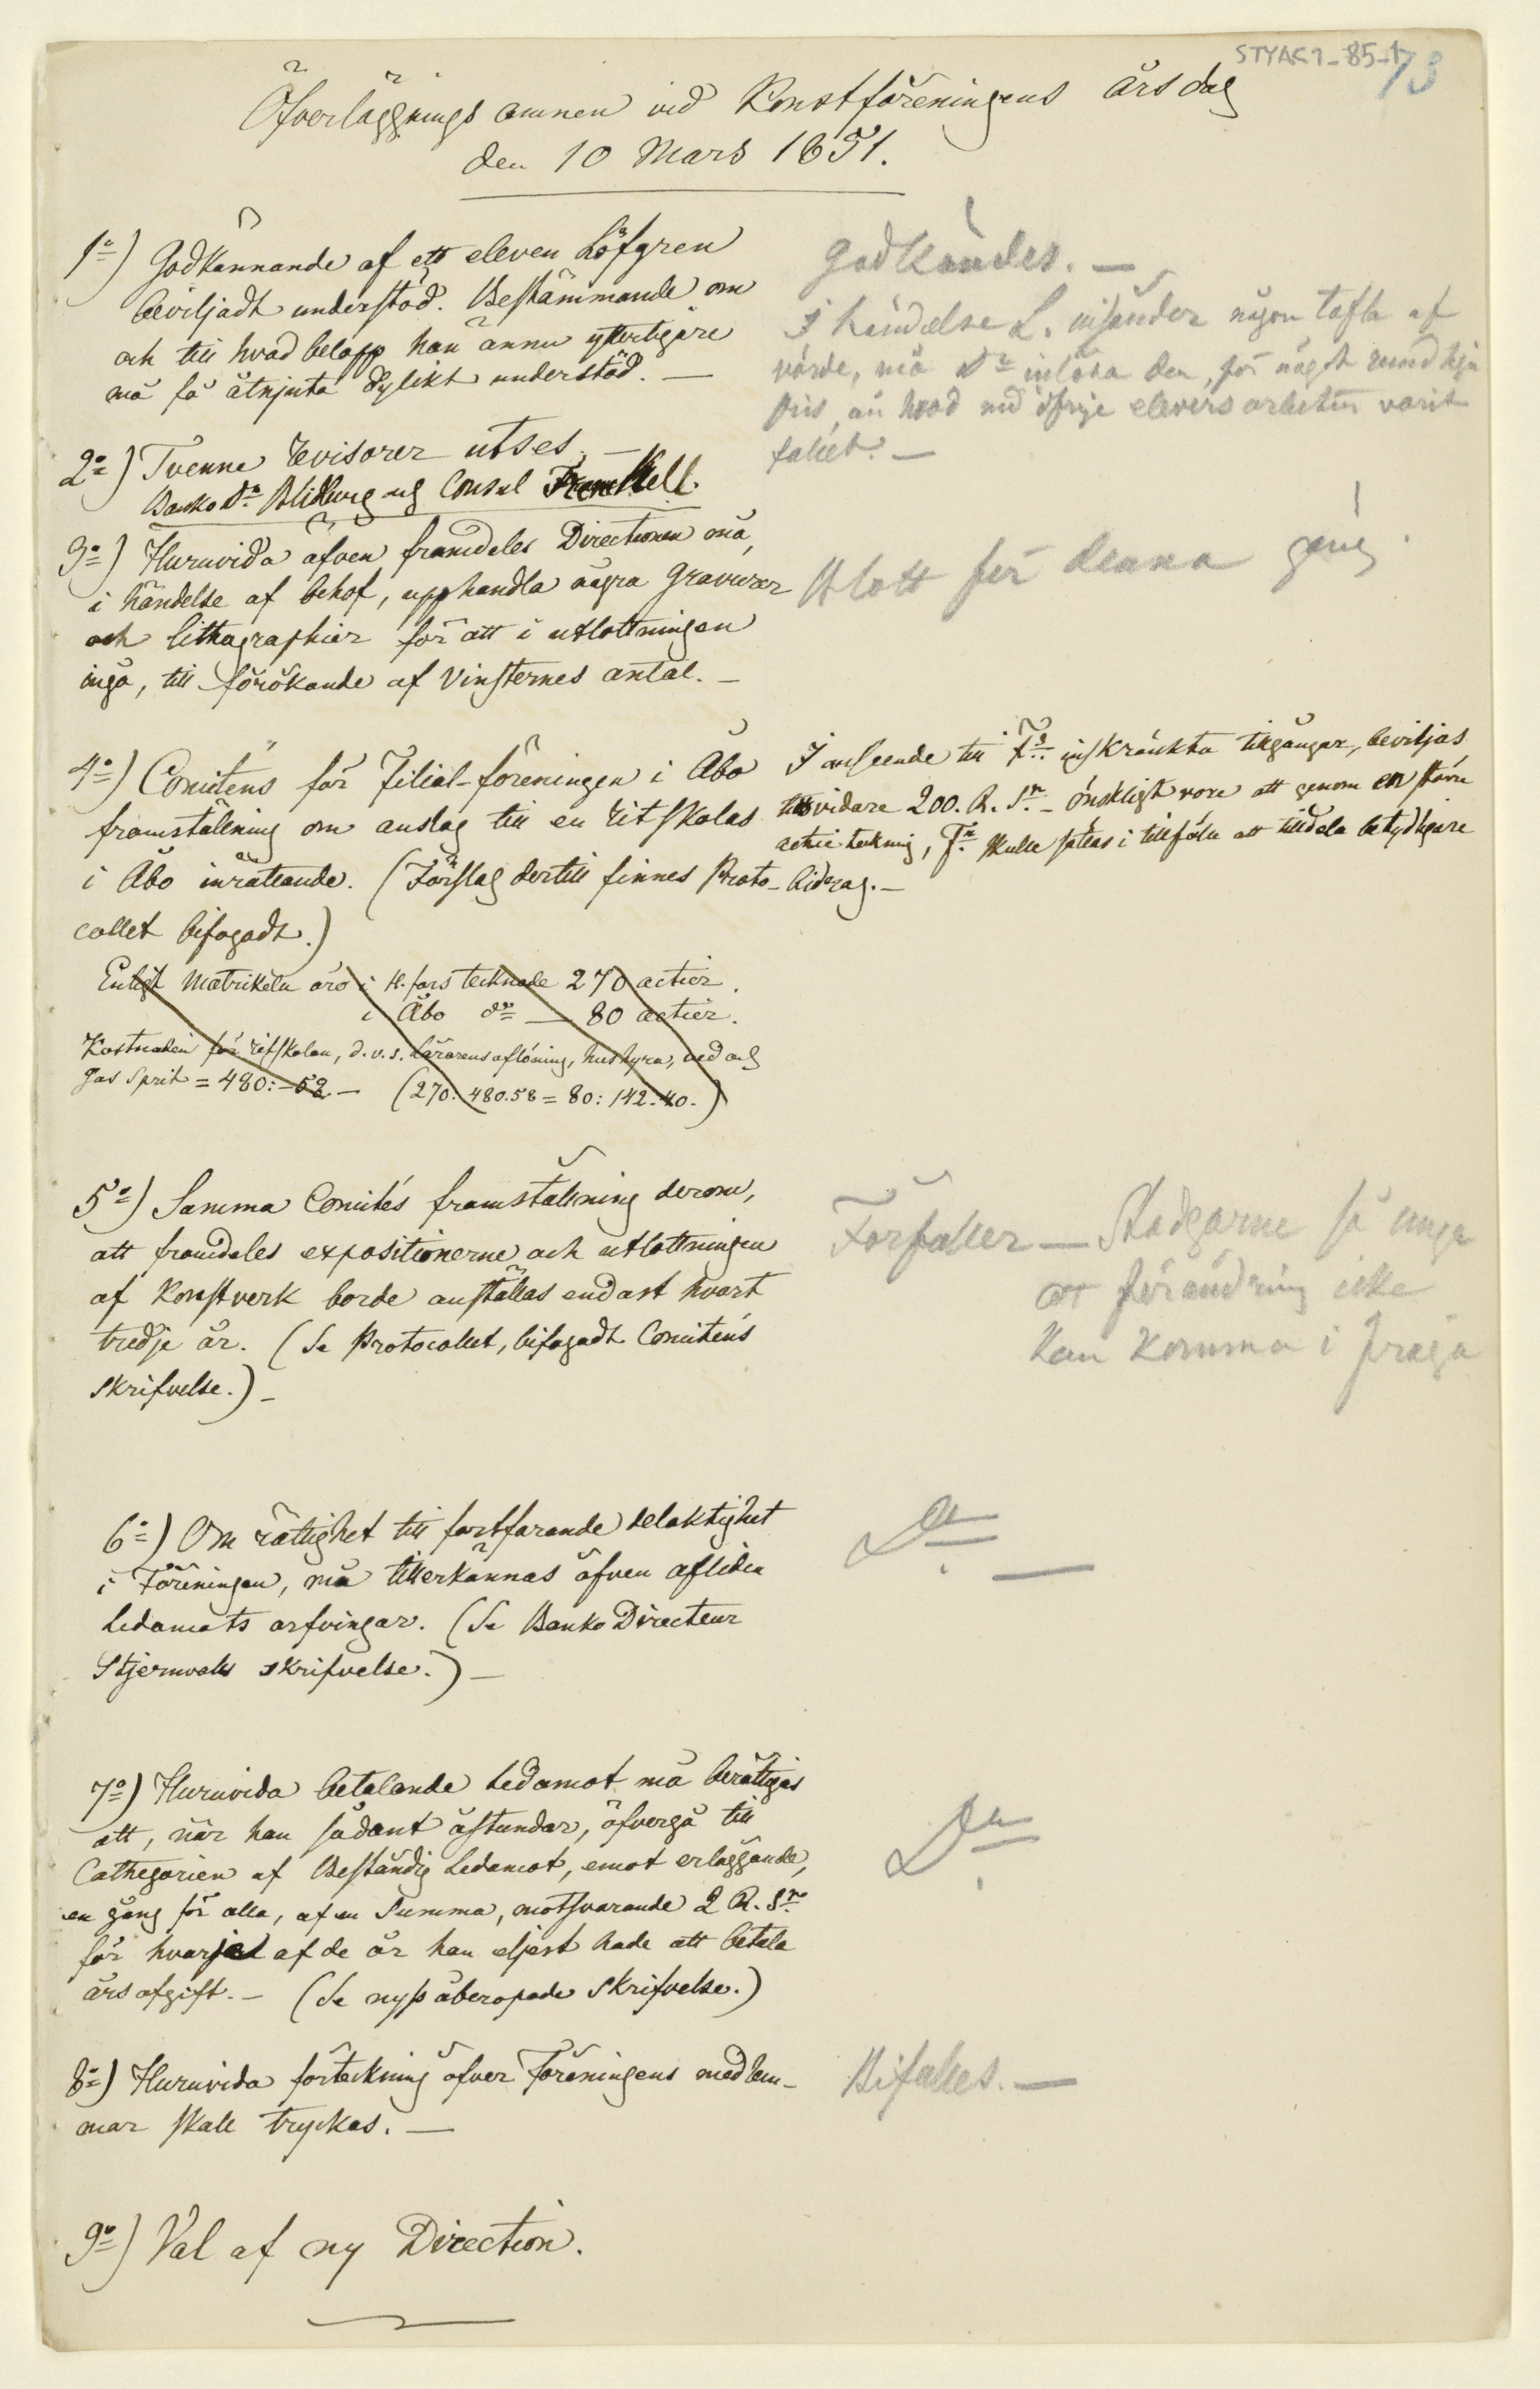 STYAK1-85-1
73
Öfverläggnings ämnen vid Konstföreningens årsdag
den 10 Mars 1851.
1º) Godkännande af ett eleven Löfgren
beviljadt understöd. Bestämmande om
och till hvad belopp han ännu ytterligare
må få åtnjuta dylikt understöd. —
Godkändes. —
I händelse L. insänder någon tafla af
värde, må Dn inlösa den, för något
pris, än hvad med öfrige elevers arbeten varit
fallet. —
2º) Tvenne revisorer utses. —
Banko Dr. Blidberg och Consul Frenckell.
3º) Huruvida äfven framdeles Directionen må,
i händelse af behof, upphandla några gravurer
och lithographier för att i utlottningen
ingå, till förökande af vinsternes antal. —
Blott för denna gång.
4º) Comiténs för Filial-föreningen i Åbo
framställning om anslag till en ritskolas
i Åbo inrättande. (Förslag dertill finnes Proto-
collet bifogadt.)
I anseende till Fs inskränkta tillgångar, beviljas
tillsvidare 200. R. Sr. – önskligt vore att genom en större
actie teckning, Fn skulle sättas i tillfälle att tilldela betydligare
bidrag. —
Enligt Matrikeln äro i H.fors tecknade 270 actier.
i Åbo do — 80 actier.
Kostnaden för ritskolan, d.v.s. Lärarens aflöning, hushyra, ved och
gas sprit = 480: – 58. — (270: 480.58 = 80: 142.40.)
5º) Samma Comités framställning derom,
att framdeles expositionerne och utlottningen
af Konstverk borde anställas endast hvart
tredje år. (Se Protocollet, bifogadt Comiténs
skrifvelse.) —
Förfaller — Stadgarne så unga
att förändring icke
kan komma i fråga
6º) Om rättighet till fortfarande delaktighet
i Föreningen, må tillerkännas äfven afliden
Ledamots arfvingar. (Se Banko Directeur
Stjernvalls skrifvelse.) —
Do —
7º) Huruvida betalande Ledamot må berättigas
att, när han sådant åstundar, öfvergå till
Cathegorien af Beständig Ledamot, emot erläggande,
en gång för alla, af en Summa, motsvarande 2 R. Sr.
för hvarje af de år han eljest hade att betala
årsafgift. — (Se nyss åberopade skrifvelse.)
Do
8º) Huruvida förteckning öfver Föreningens medlem-
mar skall tryckas. —
Bifalles. —
9º) Val af ny Direction.